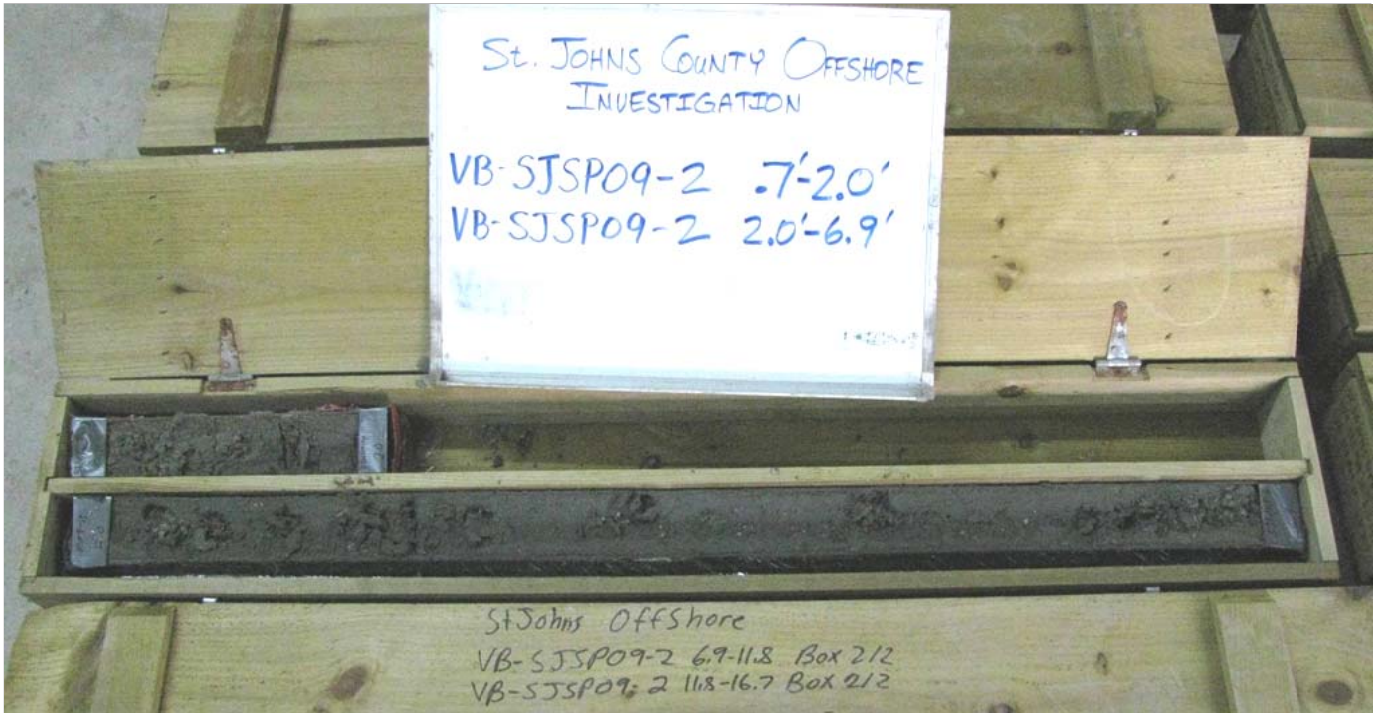 St. JOHNS COUNTY OFFSHORE
INVESTIGATION
VB-SJSP09-2 .7'-2.0'
VB-SJSP09-2 2.0'-6.9'
St Johns Offshore
VB-SJSP09-2 6.9-11.8 Box 2/2
VB-SJSP09-2 11.8-16.7 Box 2/2